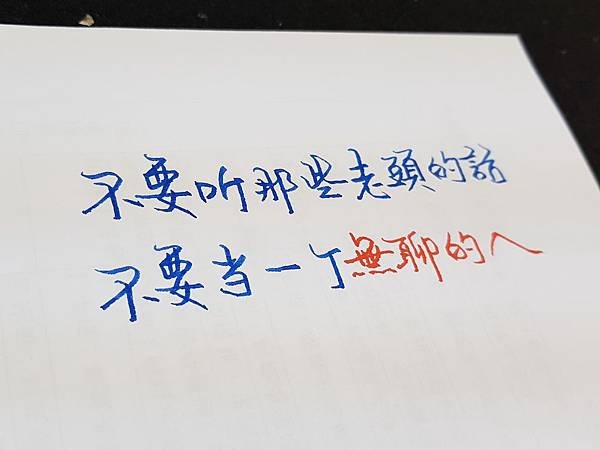 不要听那些老頭的話
不要当一个無聊的人